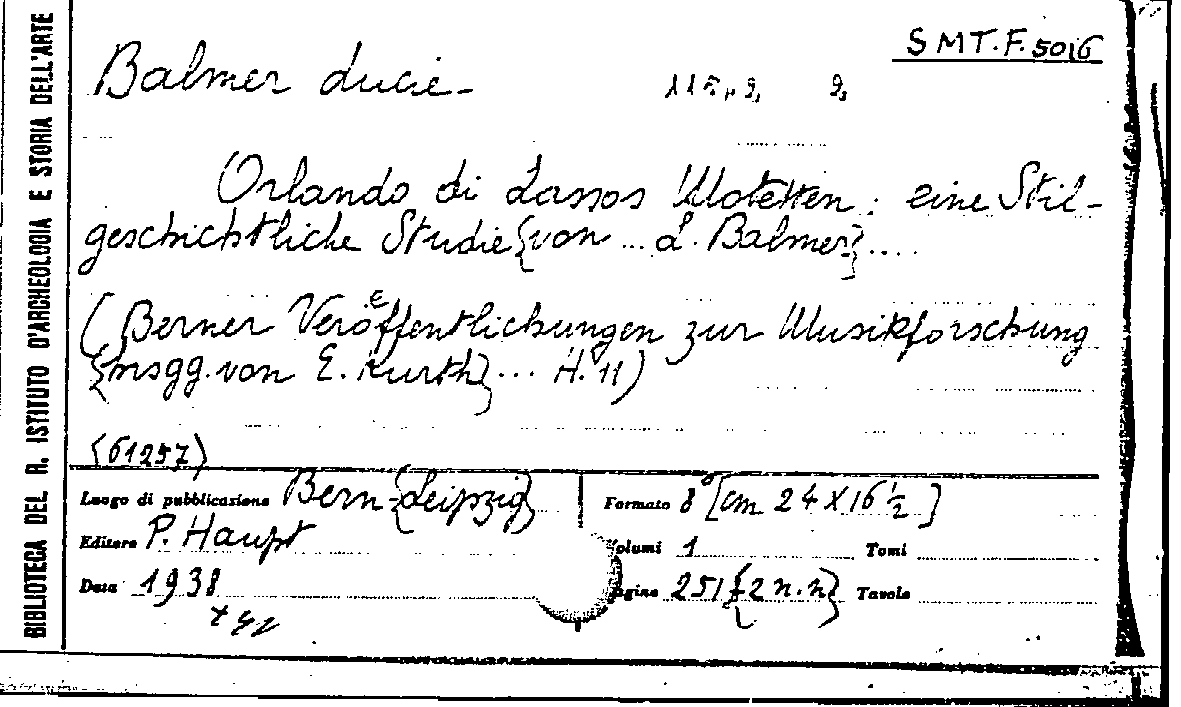 BIBLIOTECA DEL R. ISTITUTO D'ARCHEOLOGIA E STORIA DELL'ARTE
SMT.F.5016
Balmer Lucie-
Orlando di Lassos Motetten : eine Stil-
geschichtliche Studie {von ... L. Balmer} ....
(Berner Veröffentlichungen zur Musikforschung
{hrsgg. von E. Kurth} ... H. 11)
{61257}
Luogo di pubblicazione Bern-{Leipzig}
Formato 8° [cm 24 x 16 ½]
Editore P. Haupt
Volumi 1 Tomi
Data 1938
Pagine 251 {2 n.n}
Tavole